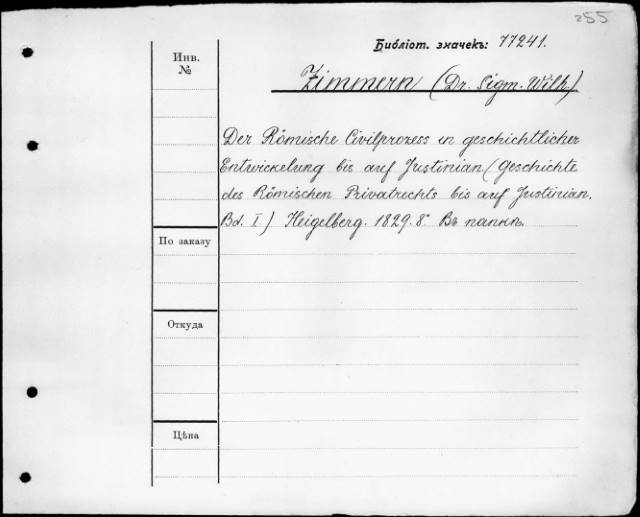 255
Библіот. значекъ: 77241.
Инв.
№
Zimmern (Dr. Sigm. Wilh.)
Der Römische Civilprozess in geschichtlicher
Entwickelung bis auf Justinian (Geschichte
des Römischen Privatrechts bis auf Justinian.
Bd. I.) Heigelberg. 1829. 8° Въ папкѣ.
По заказу
Откуда
Цѣна